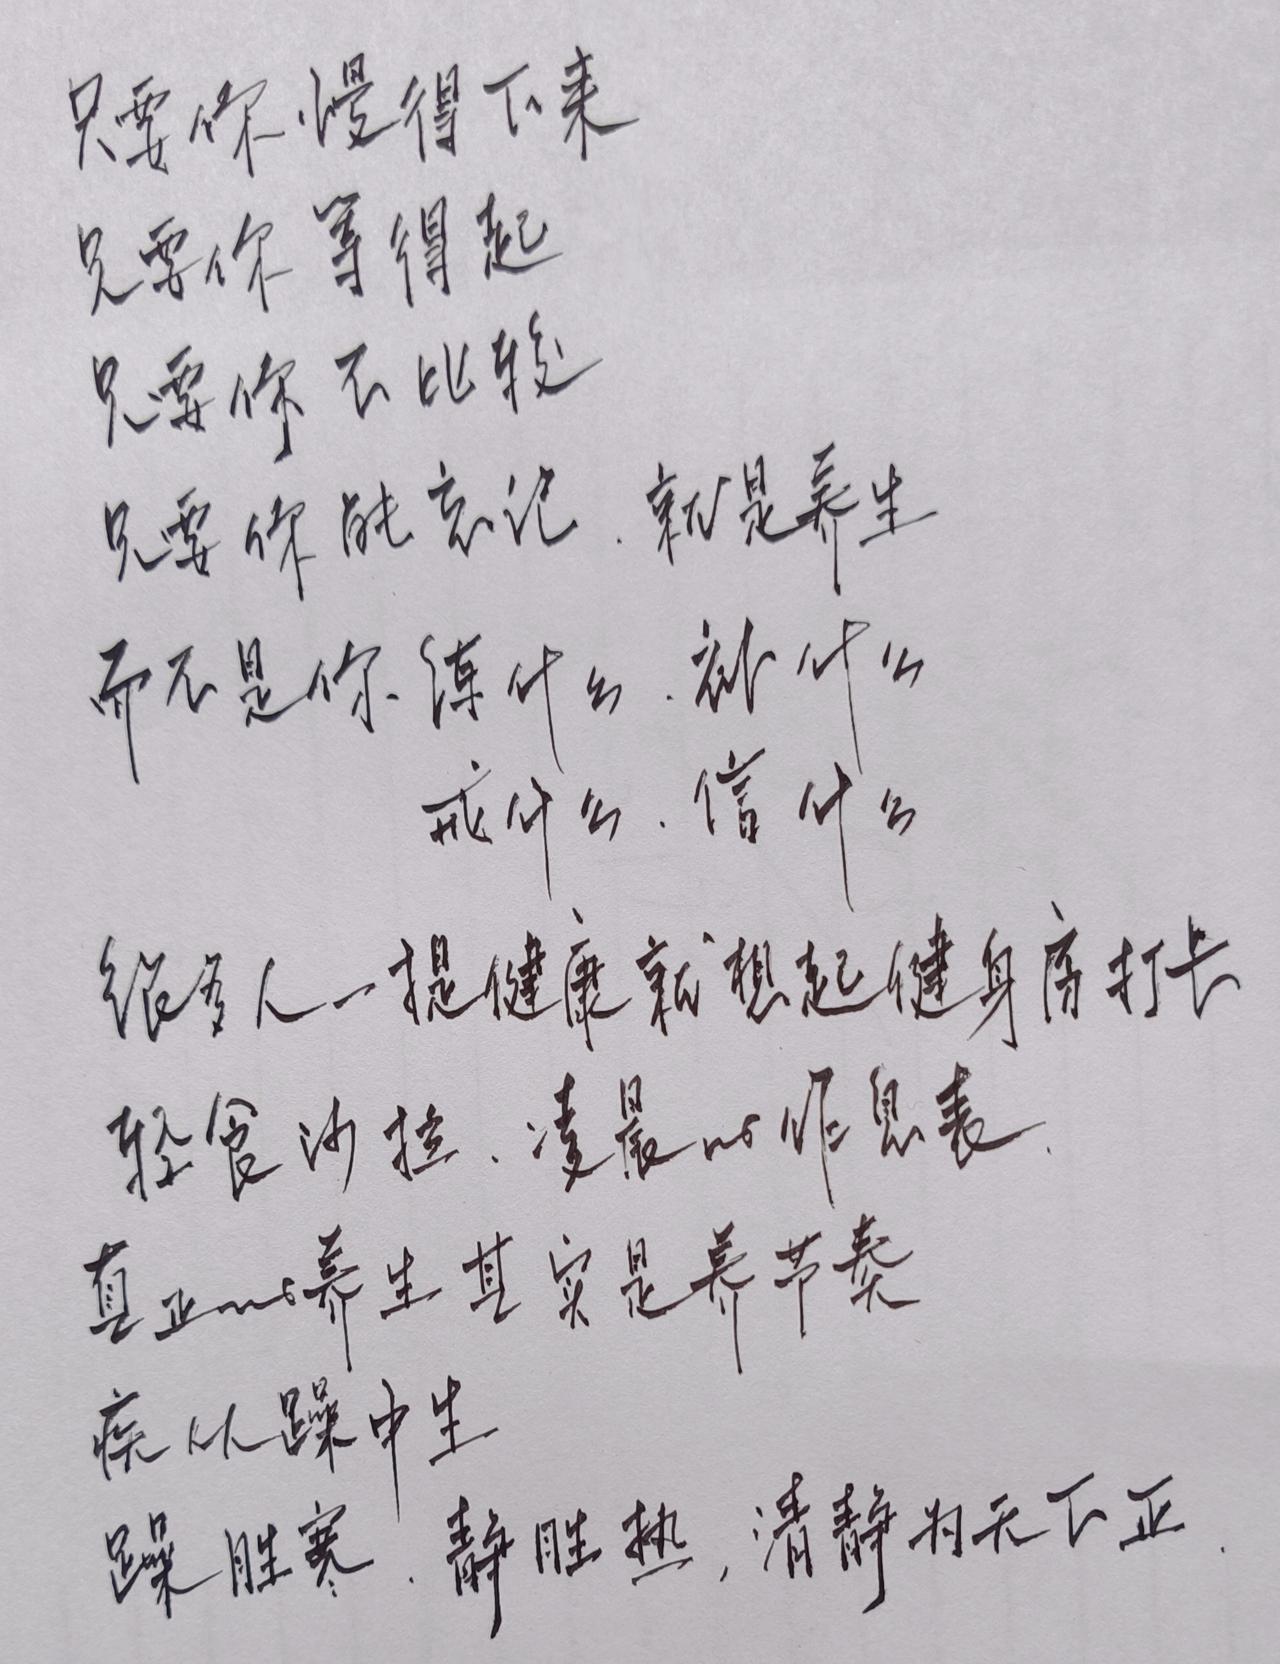 只要你慢得下来
只要你等得起
只要你不比较
只要你能忘记.就是养生
而不是你练什么.补什么
戒什么.信什么
很多人一提健康就想起健身房打卡
轻食沙拉.凌晨的作息表.
真正的养生其实是养节奏
疾从躁中生
躁胜寒.静胜热,清静为天下正.